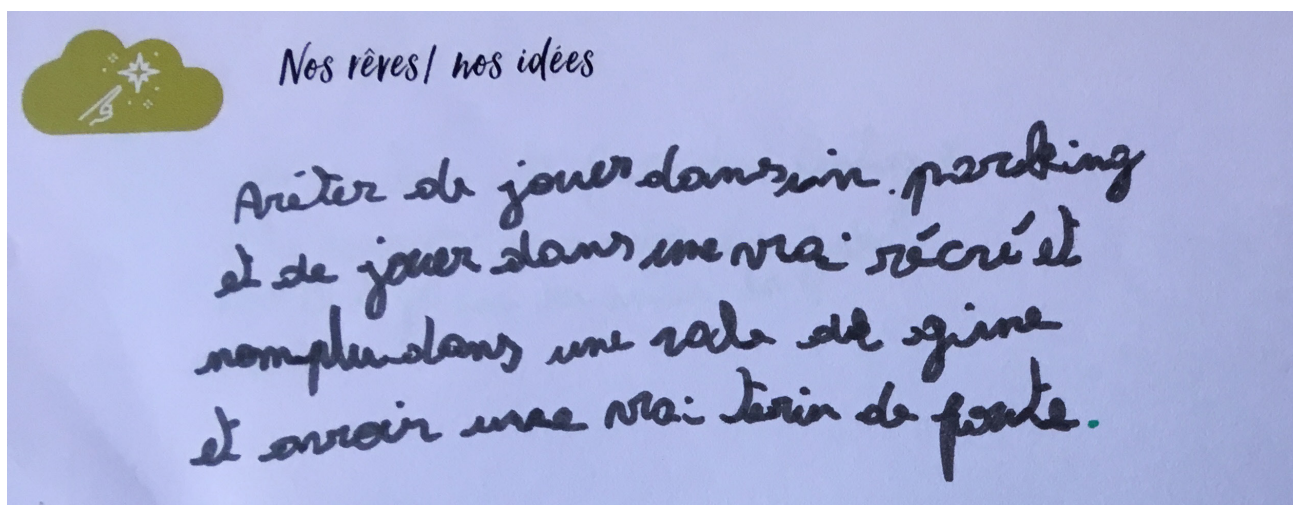 Nos rêves/ nos idées
Arêter de jouer dans un parking
et de jouer dans une vrai récré et
nomplu dans une sale de gime
et avoir une vrai terin de foute.